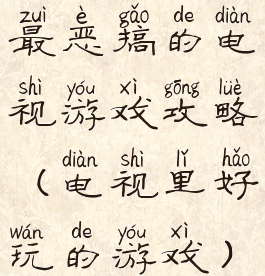 zuì è gǎo de diàn
最恶搞的电
shì yóu xì gōng lüè
视游戏攻略
diàn shì lǐ hǎo
（电视里好
wán de yóu xì
玩的游戏）